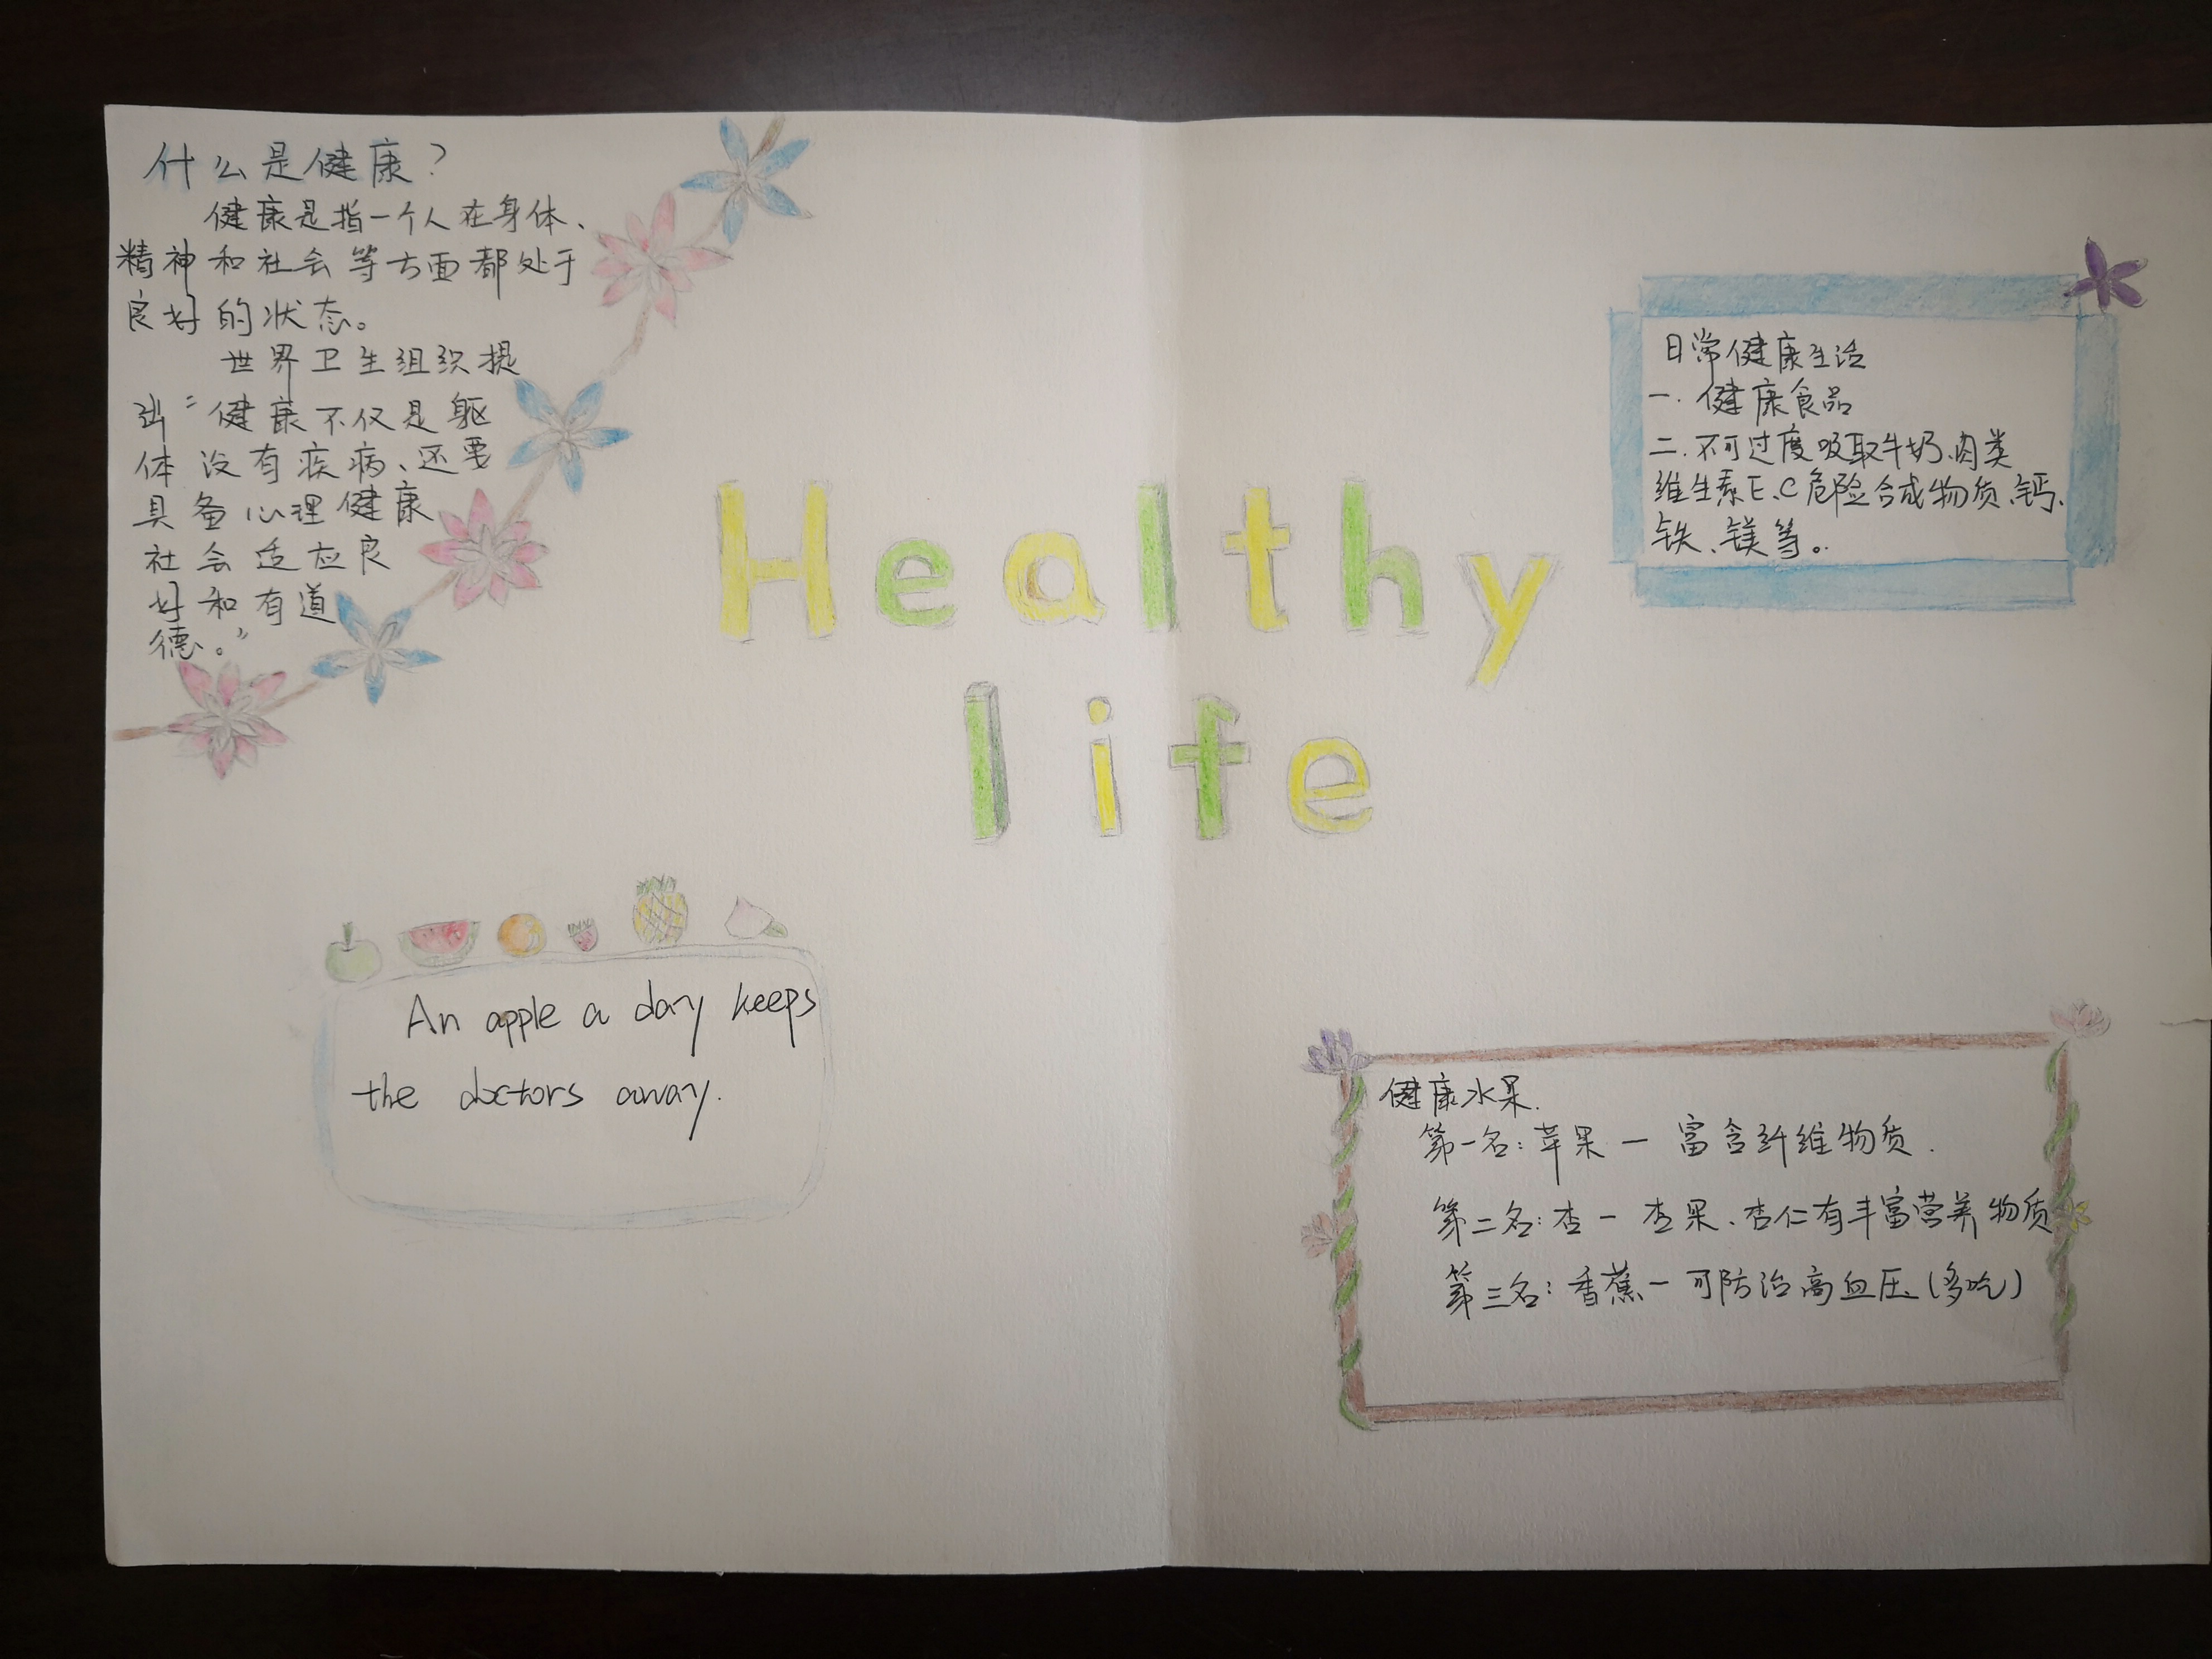 什么是健康？
健康是指一个人在身体、
精神和社会等方面都处于
良好的状态。
世界卫生组织提
出“健康不仅是躯
体没有疾病、还要
具备心理健康
社会适应良
好和有道
德。”
Healthy
life
日常健康生活
一.健康食品
二.不可过度吸取牛奶、肉类
维生素E、C危险合成物质、钙、
铁、镁等。
An apple a day keeps
the doctors away.
健康水果.
第一名：苹果—富含纤维物质.
第二名：杏—杏果、杏仁有丰富营养物质
第三名：香蕉—可防治高血压(多吃)